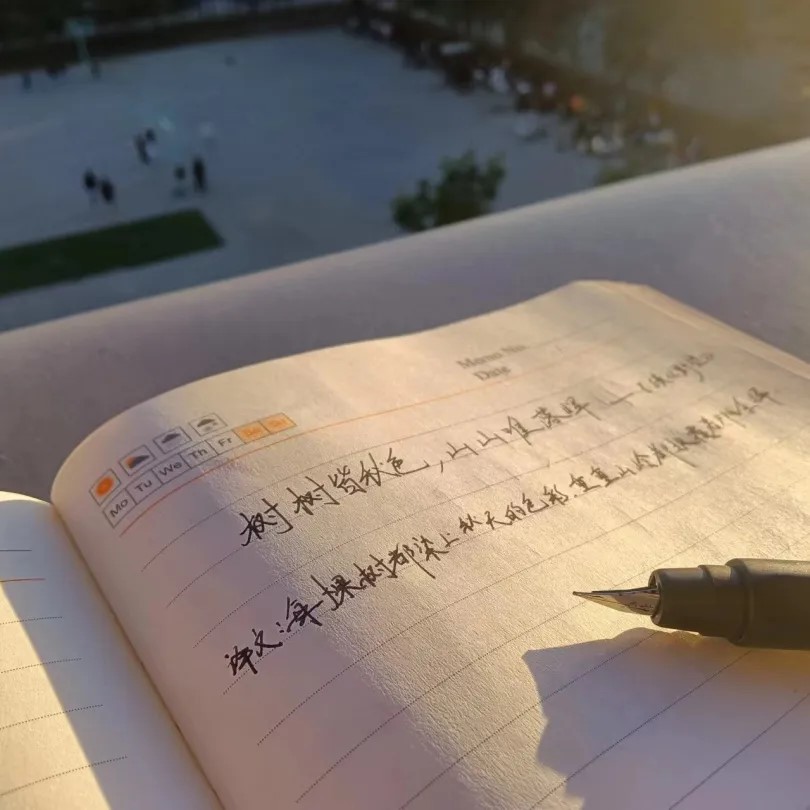 Memo No.
Date
Mo Tu We Th Fr Sa Su
树树皆秋色，山山唯落晖 ——《秋
译文：每棵树都染上秋天的色彩，重重山岭披覆着落日的余晖